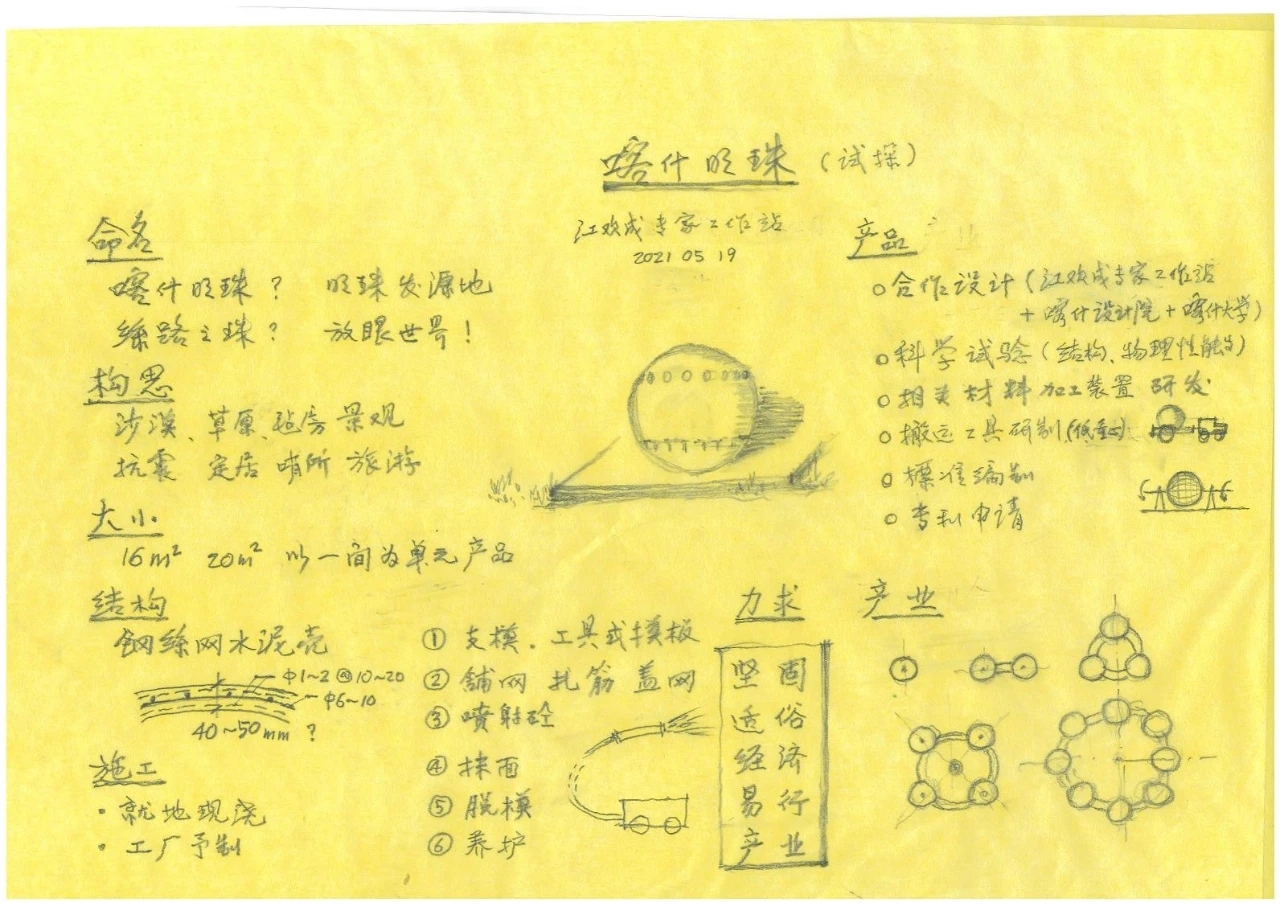 喀什明珠（试探）
江欢成专家工作站
2021 05 19
命名
喀什明珠？ 明珠发源地
丝路之珠？ 放眼世界！
构思
沙漠、草原、毡房景观
抗震 定居 哨所 旅游
大小
16m² 20m² 以一间为单元产品
结构
钢丝网水泥壳
Φ1~2@10~20
Φ6~10
40~50mm ?
施工
·就地现浇
·工厂予制
① 支模．工具或模板
② 铺网 扎筋 盖网
③ 喷射砼
④ 抹面
⑤ 脱模
⑥ 养护
力求
坚固
适俗
经济
易行
产业
产品
○合作设计（江欢成专家工作站
+喀什设计院+喀什大学）
○科学试验（结构、物理性能）
○相关材料加工装置研发
○搬运工具研制
○标准编制
○专利申请
产业